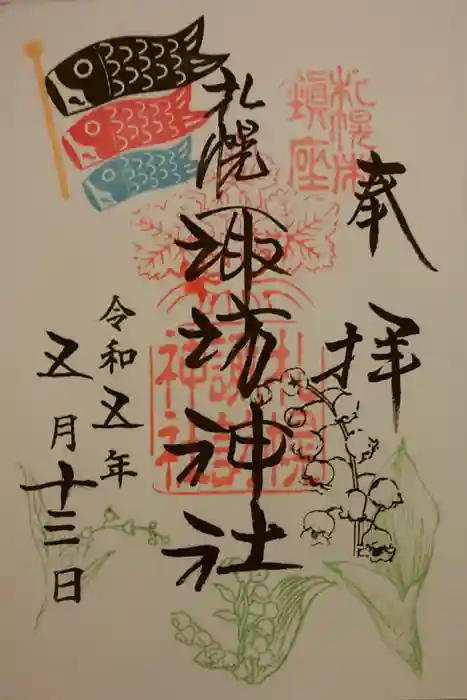 奉拝
札幌村
鎮座
札幌
諏訪神社
札幌
諏訪
神社
令和五年
五月十三日